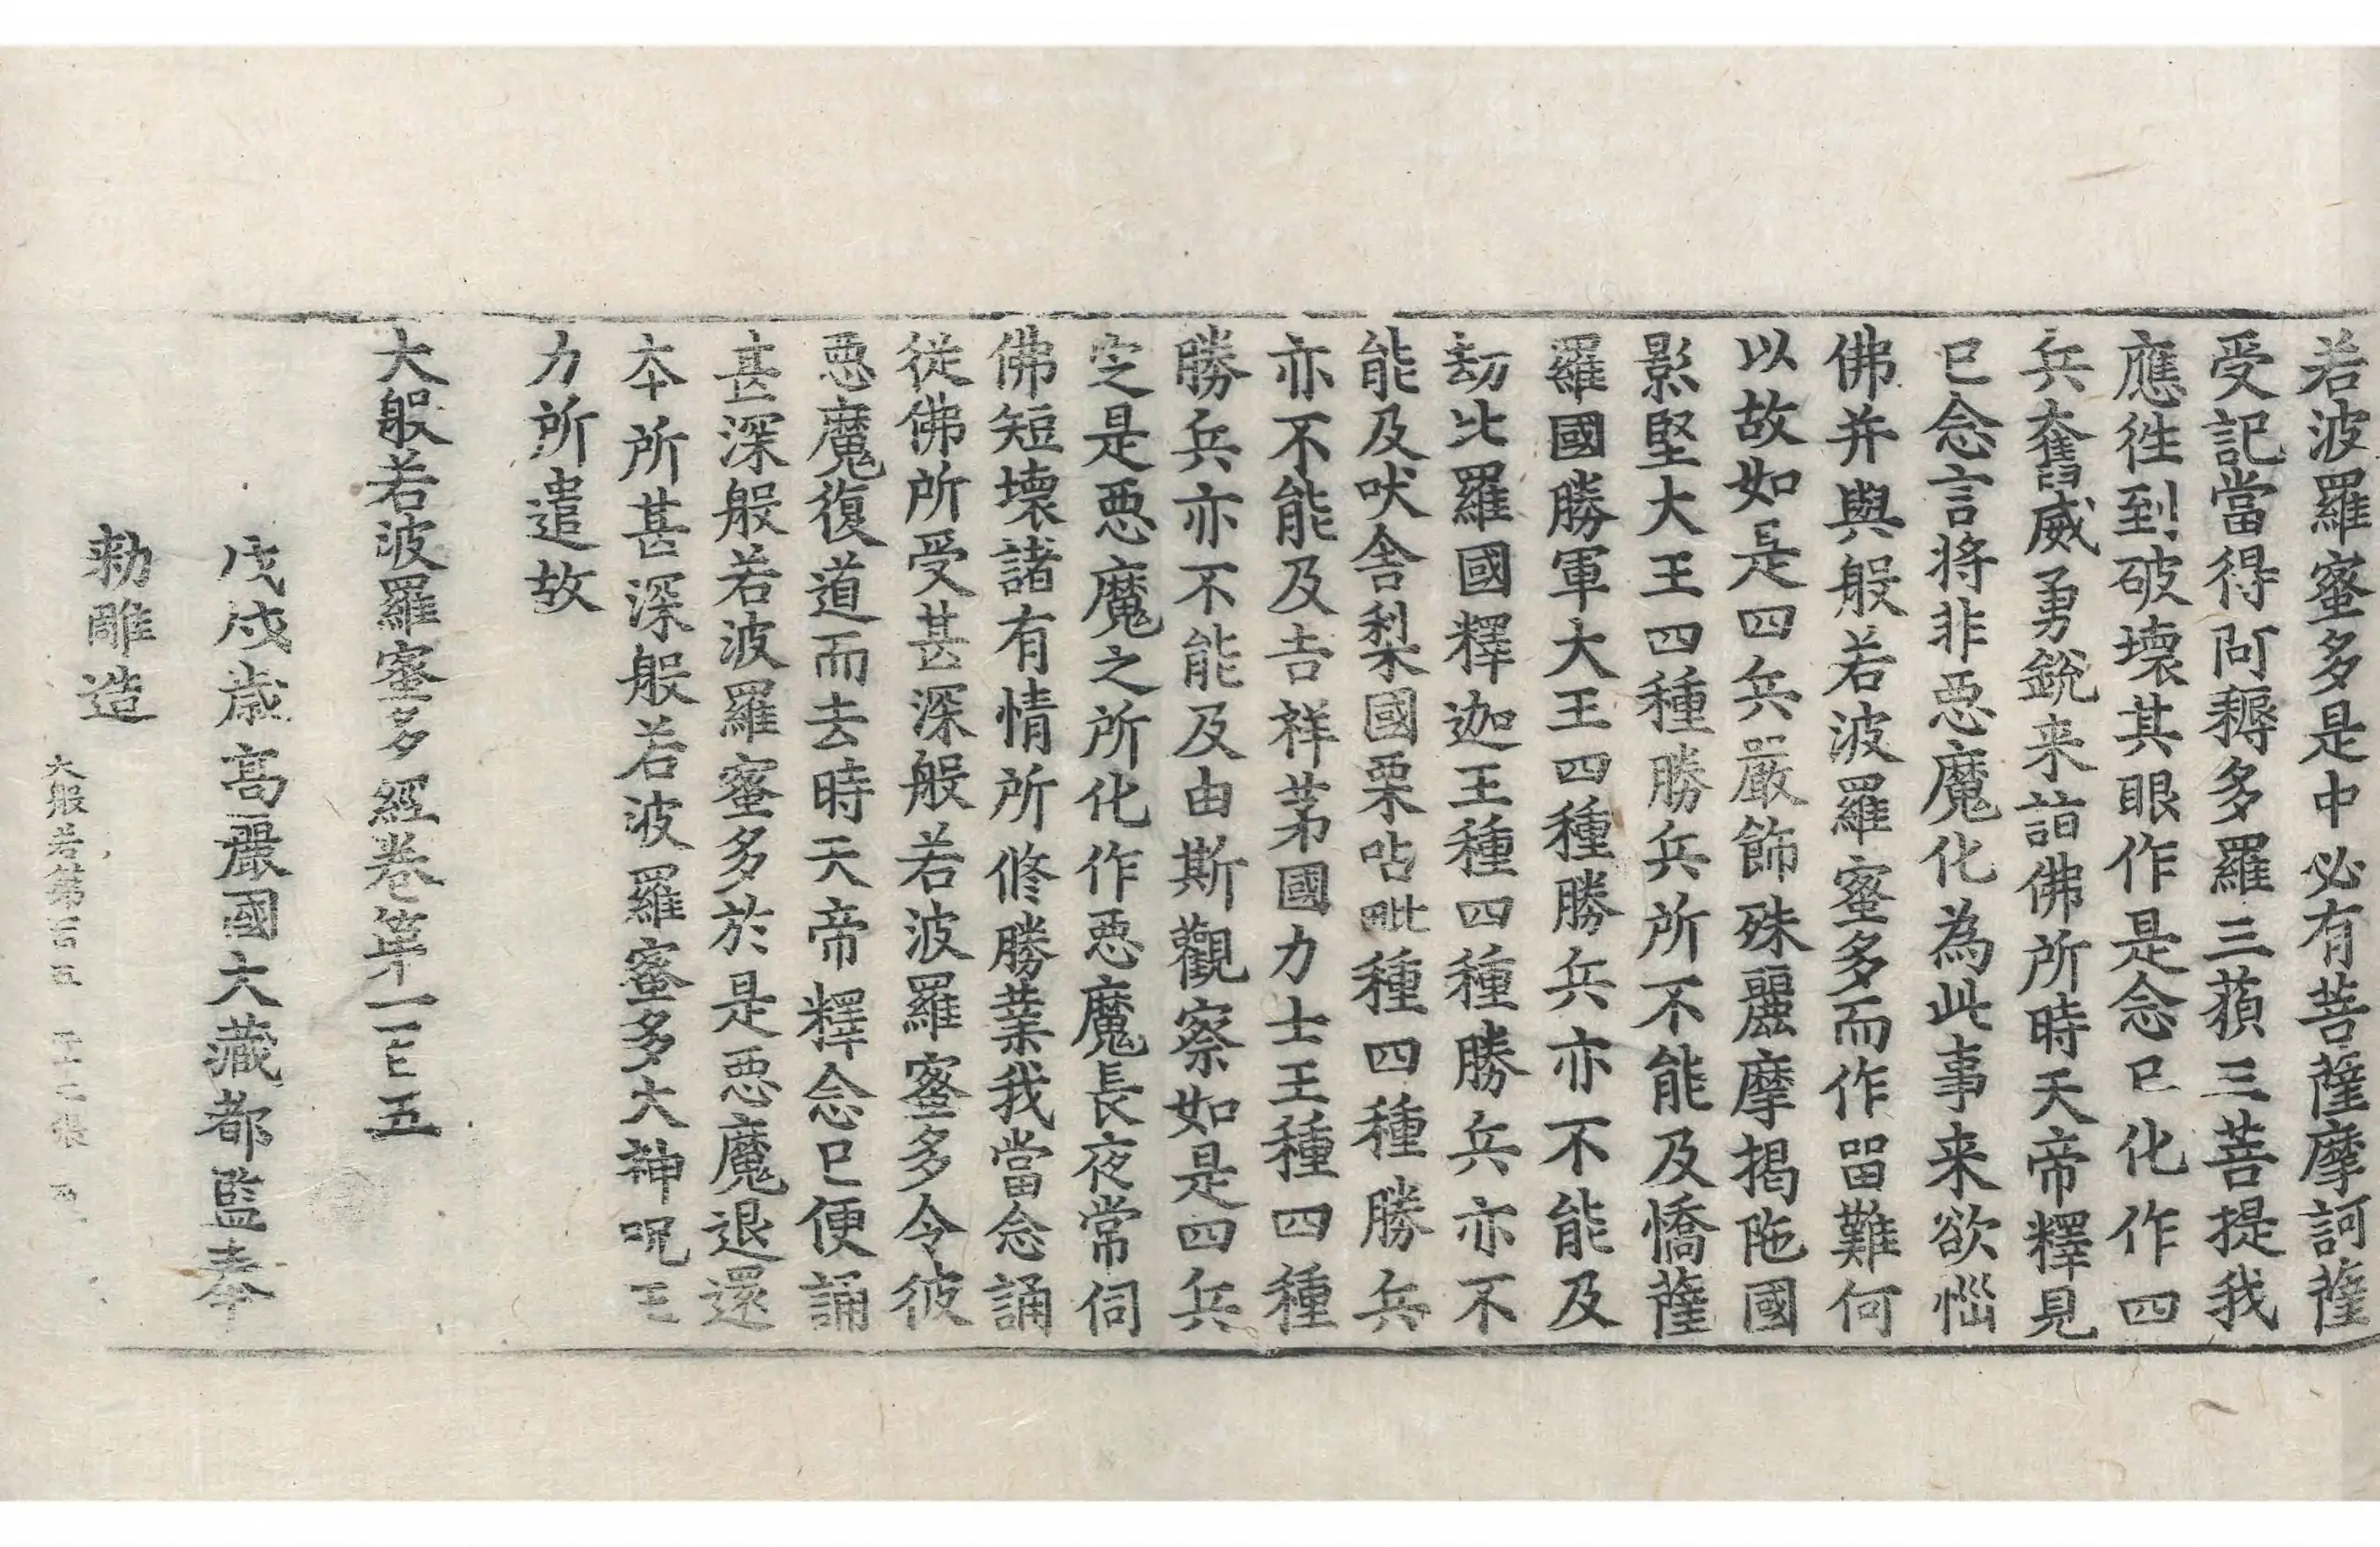 若波羅蜜多是中必有菩薩摩訶薩
受記當得阿耨多羅三藐三菩提我
應徃到破壞其眼作是念已化作四
兵奮威勇銳来詣佛所時天帝釋見
已念言將非惡魔化為此事来欲惱
佛并與般若波羅蜜多而作留難何
以故如是四兵嚴飾殊麗摩揭陁國
影堅大王四種勝兵所不能及憍薩
羅國勝軍大王四種勝兵亦不能及
劫比羅國釋迦王種四種勝兵亦不
能及吠舍梨國栗呫毗種四種勝兵
亦不能及吉祥茅國力士王種四種
勝兵亦不能及由斯觀察如是四兵
定是惡魔之所化作惡魔長夜常伺
佛短壞諸有情所修勝業我當念誦
從佛所受甚深般若波羅蜜多令彼
惡魔復道而去時天帝釋念已便誦
甚深般若波羅蜜多於是惡魔退還
本所甚深般若波羅蜜多大神呪王
力所遣故
大般若波羅蜜多經卷第一百五
戊戌歲高麗國大藏都監奉
勑雕造
大般若第百五